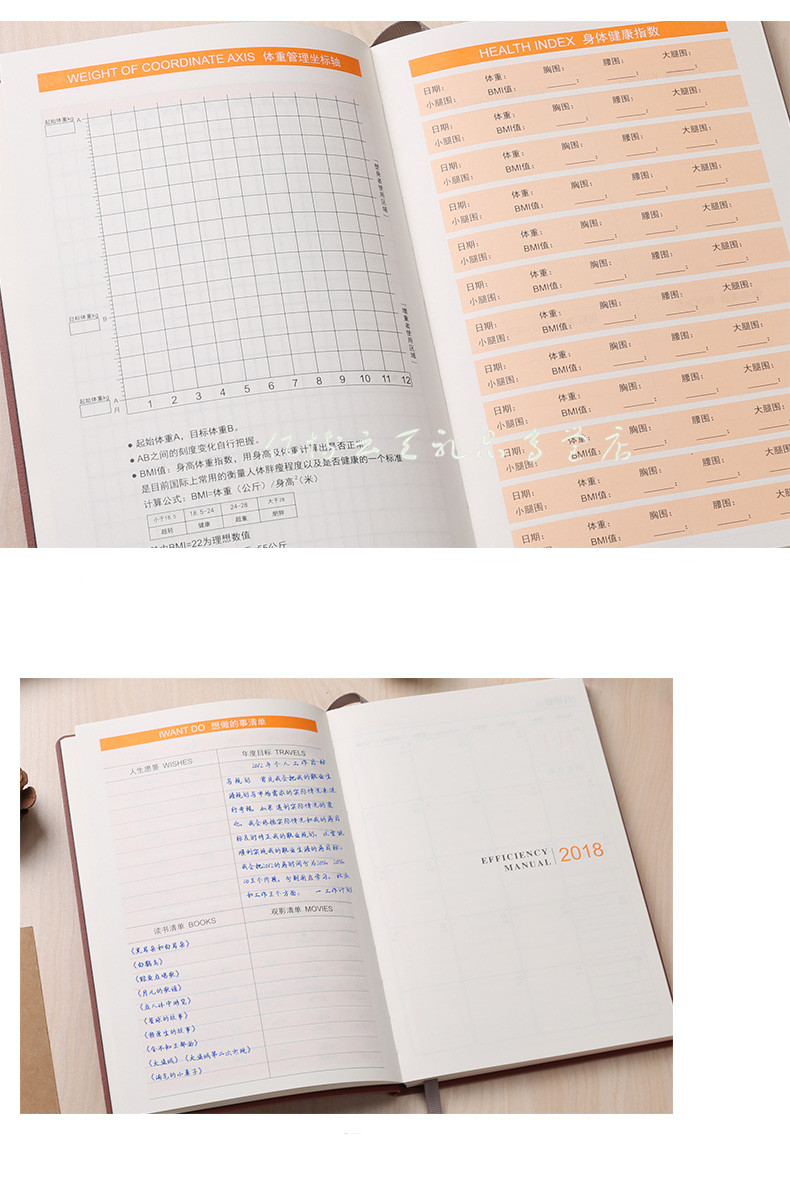 WEIGHT OF COORDINATE AXIS 体重管理坐标轴
起始体重kg A
瘦身者使用区域
目标体重kg B
增重者使用区域
起始体重kg A
月 1 2 3 4 5 6 7 8 9 10 11 12
● 起始体重A，目标体重B。
● AB之间的刻度变化自行把握。
● BMI值：身高体重指数，用身高及体重计算出是否正常
是目前国际上常用的衡量人体胖瘦程度以及是否健康的一个标准
计算公式：BMI=体重（公斤）/身高²（米）
小于18.5 18.5-24 24-28 大于28
超轻 健康 超重 肥胖
BMI=22为理想数值
55公斤
HEALTH INDEX 身体健康指数
日期： 体重： 胸围： 腰围： 大腿围：
小腿围： BMI值： ； ； ；
日期： 体重： 胸围： 腰围： 大腿围：
小腿围： BMI值： ； ； ；
日期： 体重： 胸围： 腰围： 大腿围：
小腿围： BMI值： ； ； ；
日期： 体重： 胸围： 腰围： 大腿围：
小腿围： BMI值： ； ； ；
日期： 体重： 胸围： 腰围： 大腿围：
小腿围： BMI值： ； ； ；
日期： 体重： 胸围： 腰围： 大腿围：
小腿围： BMI值： ； ； ；
日期： 体重： 胸围： 腰围： 大腿围：
小腿围： BMI值： ； ； ；
日期： 体重： 胸围： 腰围： 大腿围：
小腿围： BMI值： ； ； ；
日期： 体重： 胸围： 腰围： 大腿围：
小腿围： BMI值： ； ； ；
日期： 体重： 胸围： 腰围： 大腿围：
小腿围： BMI值： ； ； ；
日期： 体重： 胸围： 腰围： 大腿围：
小腿围： BMI值： ； ； ；
日期： 体重： 胸围： 腰围：
BMI值：
IWANT DO 想做的事清单
人生愿答 WISHES
年度目标 TRAVELS
2012年个人工作目标
与规划 首先我会把我的职业生
涯规划与市场需求的实际情况来进
行考核，如果遇到实际情况的变
化，我会依据实际情况和我的为目
标及时修正我的职业规划，以变就
顺利实现我的职业生涯的为目标。
和工作三个方面。 一工作计划
读书清单 BOOKS
《黑眉朵和白眉朵》
《白鹤鸟》
《鲸鱼在唱歌》
《月儿的歌谣》
《在人体中游览》
《星球的故事》
《韩原生的故事》
《金木和三郎前》
《大盗贼》《大盗贼第二次出现》
《淘气的小鼻子》
观影清单 MOVIES
EFFICIENCY
MANUAL 2018